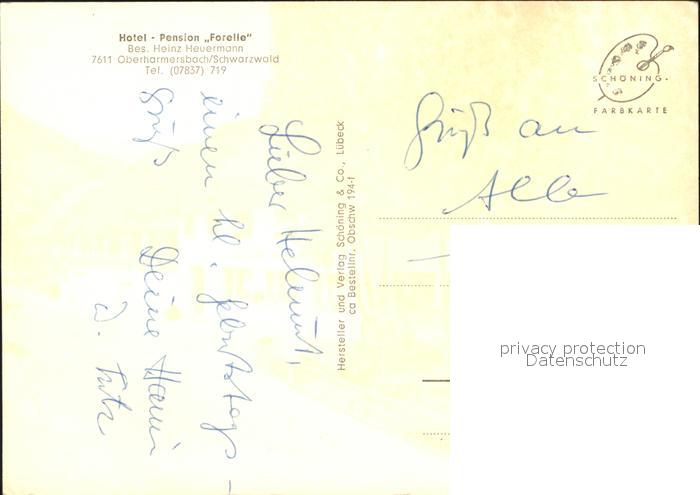 Hotel - Pension „Forelle"
Bes. Heinz Heuermann
7611 Oberharmersbach/Schwarzwald
Tel. (07837) 719
Lieber Helmut,
einen kl. Geburtstags-
gruß
Deine Hanni
u. Fritz
Hersteller und Verlag Schöning & Co., Lübeck
ca Bestellnr. Obschw 194-f
SCHÖNING·
FARBKARTE
Gruß an
Alle
privacy protection
Datenschutz